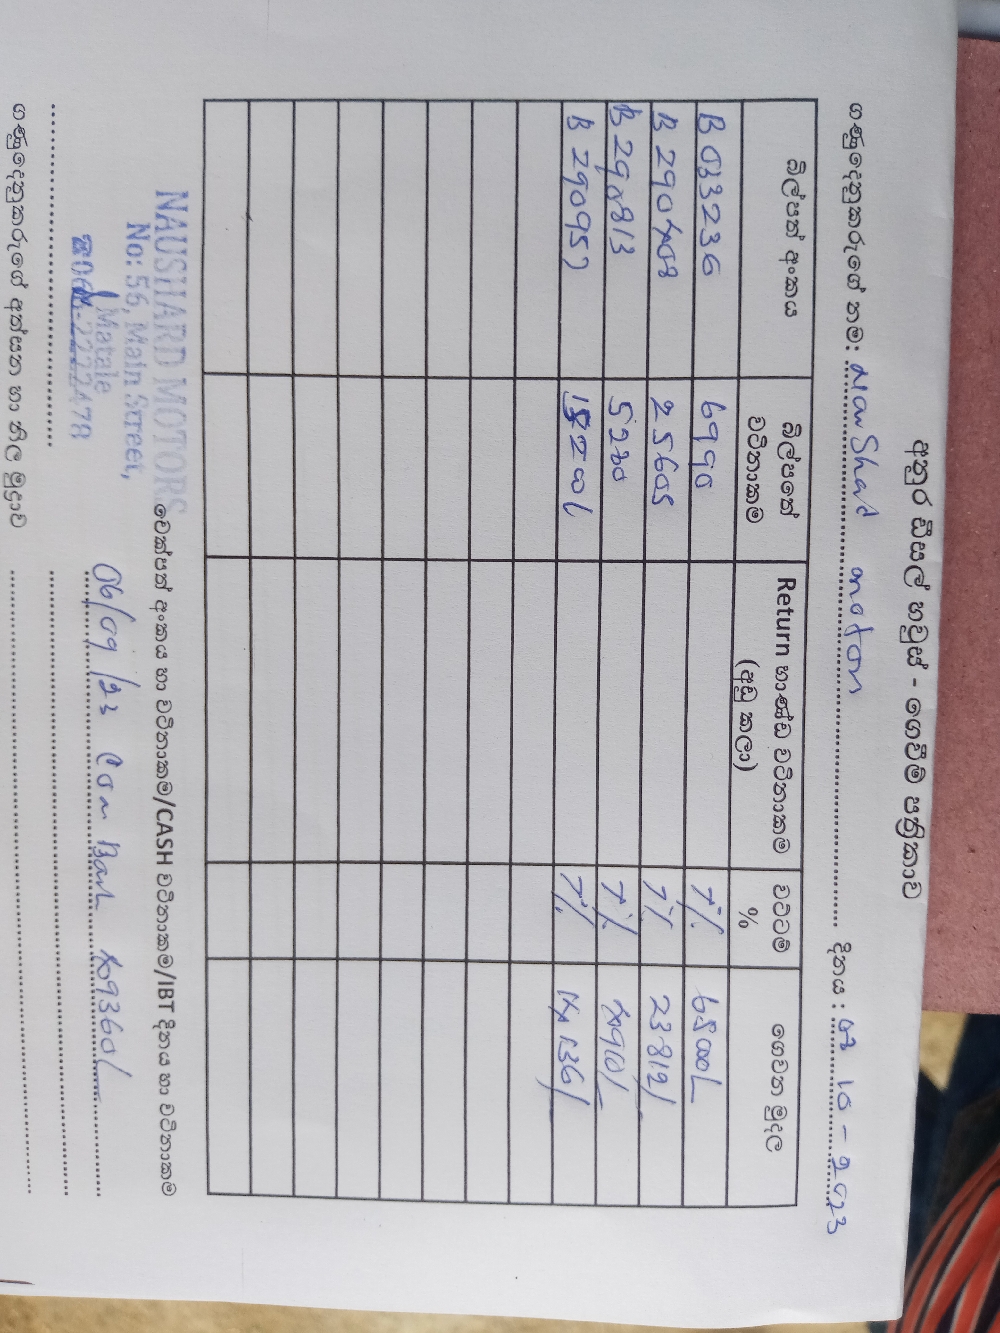 අනුර ඩීසල් හවුස් - ගෙවීම් පත්‍රිකාව
ගණුදෙනුකරුගේ නම: Nau Shad motors දිනය: 03 10 - 2023
බිල්පත් අංකය බිල්පතේ වටිනාකම Return භාණ්ඩ වටිනාකම (අඩු කලා) වට්ටම් % ගෙවන මුදල
B 033236 6990 7% 6500/
B 290408 25605 7% 23812/
B 290813 5280 7% 4910/
B 290957 15200/ 7% 14136/
චෙක්පත් අංකය හා වටිනාකම/CASH වටිනාකම/IBT දිනය හා වටිනාකම
NAUSHARD MOTORS
No: 56, Main Street,
Matale
☎066-2222478
06/09/23 Com Bank 49360/
ගණුදෙනුකරුගේ අත්සන හා නිල මුද්‍රාව